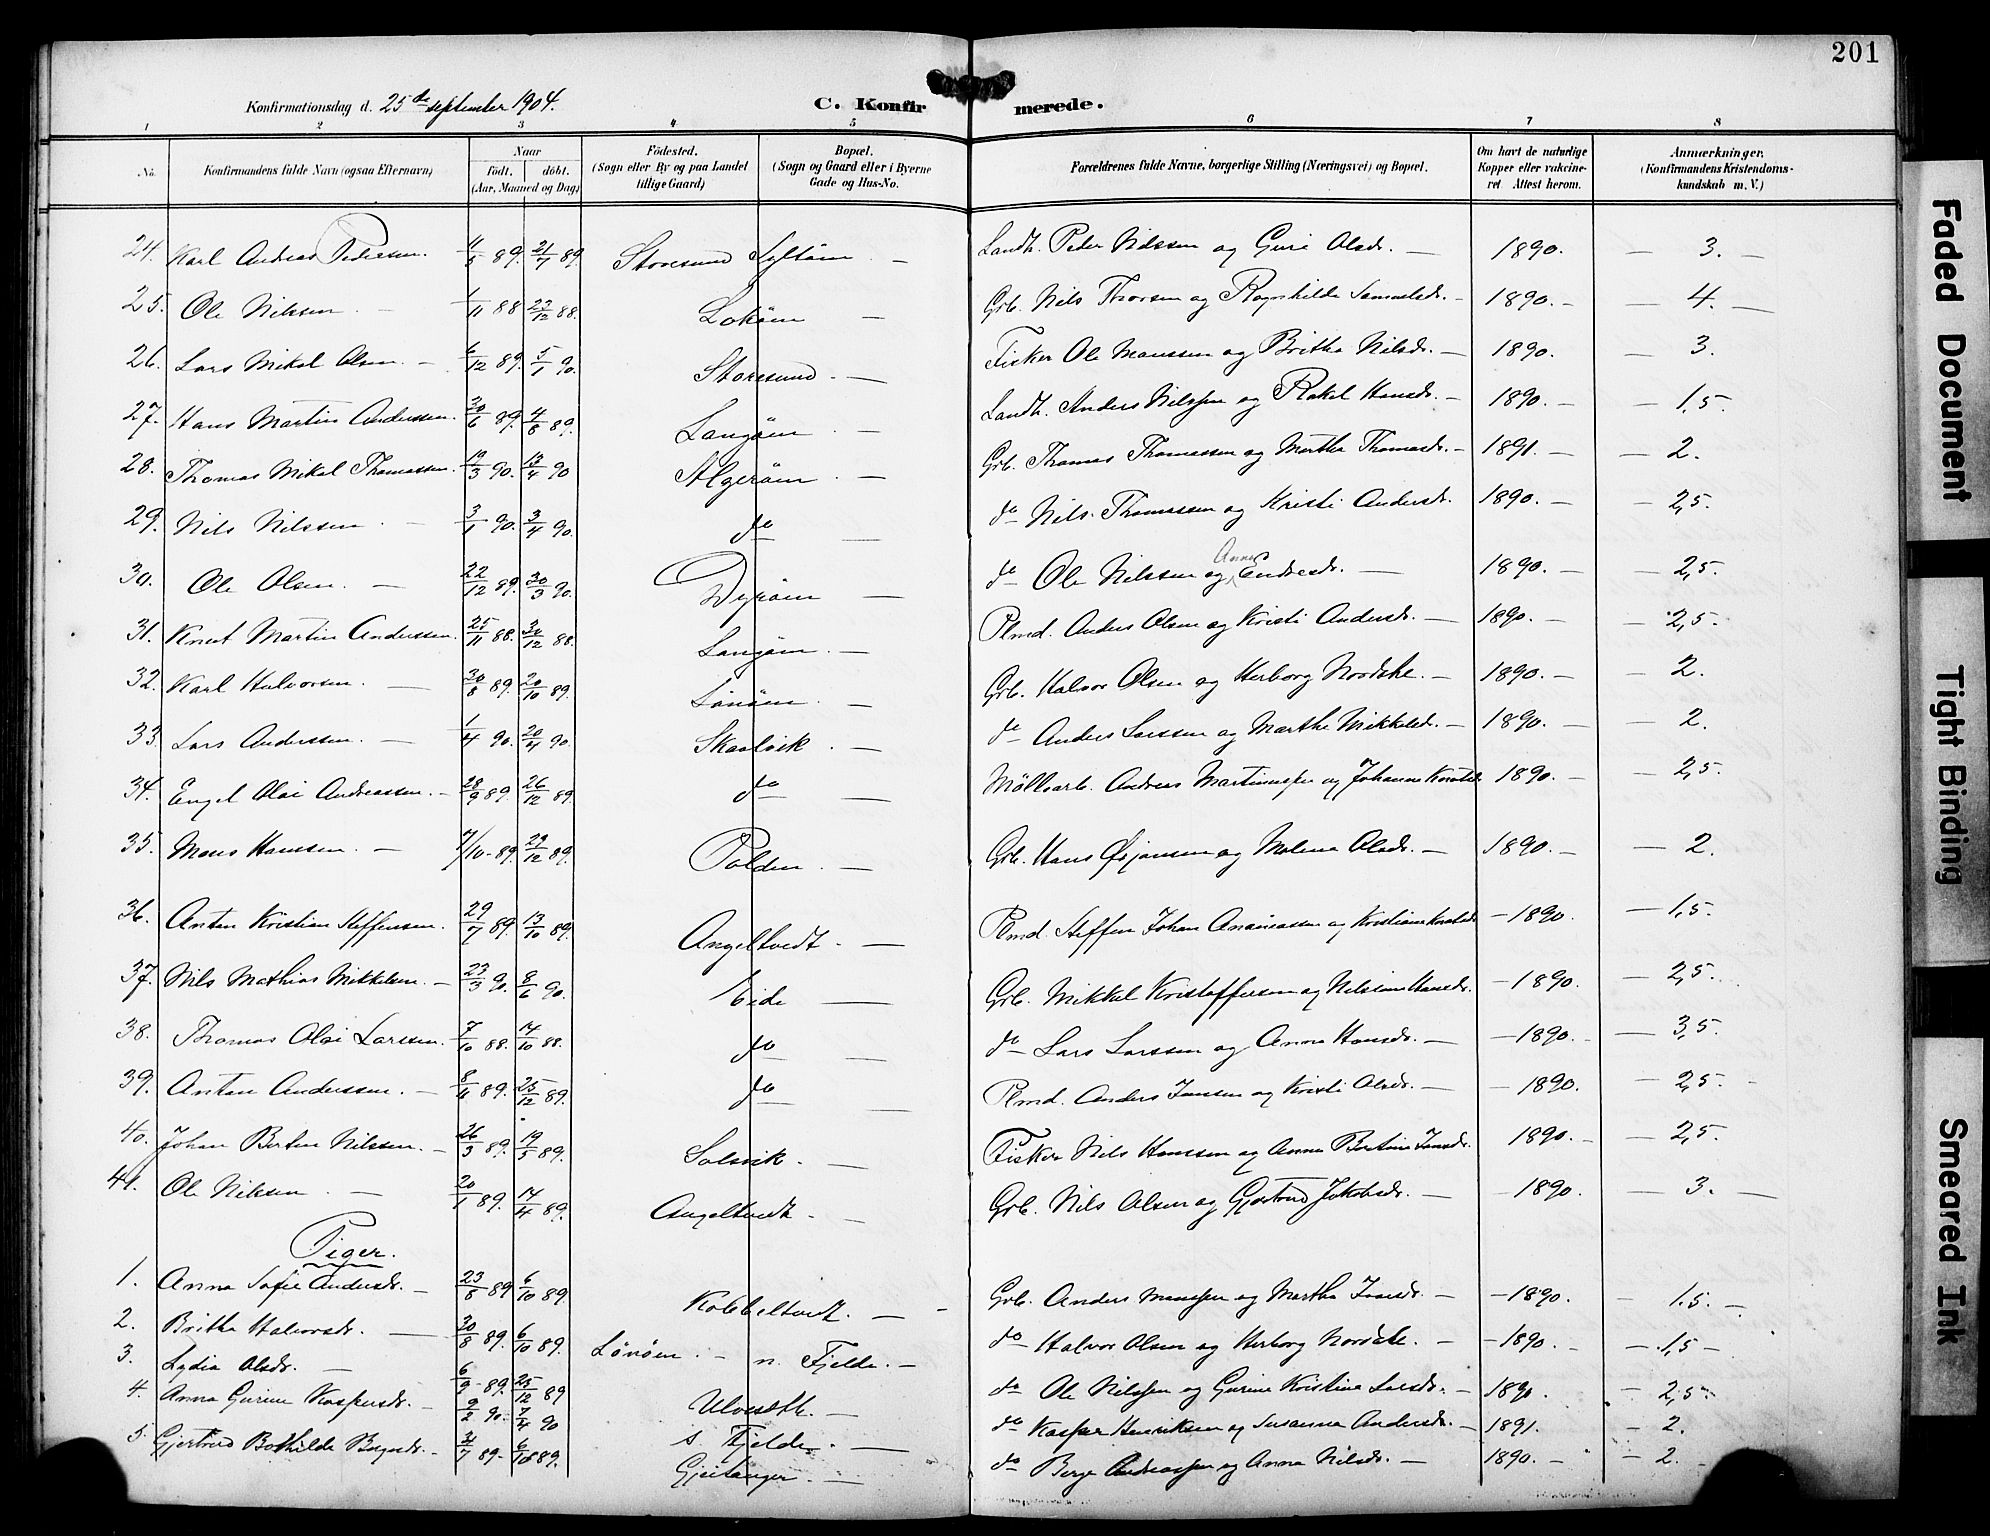 201
Konfirmationsdag d. 25de september 1904. C. Konfirmerede.
1 2 3 4 5 6 7 8
No. Konfirmandens fulde Navn (ogsaa Efternavn) Naar født. døbt. (Aar, Maaned og Dag) Fødested. (Sogn eller By og paa Landet tillige Gaard) Bopæl. (Sogn og Gaard eller i Byerne Gade og Hus-No. Forældrenes fulde Navne, borgerlige Stilling (Næringsvei) og Bopæl. Om havt de naturlige Kopper eller vakcineret Attest herom. Anmærkninger. (Konfirmandens Kristendomskundskab m. V.)
24. Karl Andreas Pedersen. 89. 21/7 89. Storesund Syltøen — Landh. Peder Nilssen og Guri Olsdr. — 1890. — 3. —
25. Ole Nilssen. — 1/11 88 23/12 88. Lokøen — Grb. Nils Thorsen og Ragnhilde Samuelsdr. — 1890. — — 4. —
26. Lars Mikal Olsen. — 6/12 89. 5/1 90. Storesund. — Fisker Ole Monssen og Britha Nilsdr. — 1890. — 3.
27. Hans Martin Anderssen. 30/6 89. 4/8 89. Langøen — Landh. Anders Nilssen og Rakel Hansdr. — 1890. — — 1,5.
28. Thomas Mikal Thomassen. 90. 13/4 90 Algerøen — Grb. Thomas Thomassen og Martha Thomasdr. — 1891. — — 2.
29. Nils Nilssen — 3/1 90. 3/4 90. do — do Nils Thomassen og Kristi Andersdr. 1890. — — 2,5.
30. Ole Olsen. — 22/12 89. 30/3 90. Dyrøen — do Ole Nilssen og Anna Endresdr. — 1890. — — 2,5.
31. Knut Martin Anderssen. 25/11 88. 30/12 88. Langøen. — Plmd. Anders Olsen og Kristi Andersdr. — 1890. — — 2,5.
32. Karl Halvorsen. — 30/8 89. 20/10 89. Lønøen. — Grb. Halvor Olsen og Herborg Nordske. — 1890. — — 2.
33. Lars Anderssen. — 1/4 90. 20/4 90. Skaalvik. — do Anders Larssen og Marthe Mikkelsdr. — 1890. — — 2.
34. Engel Olai Andreassen. — 28/9 89. 26/12 89. do — Møllearb. Andreas Martinussen og Johanne Knutsdr. 1890. — — 2,5.
35. Mons Hanssen. — 7/10 - 89. 29/12 89. Polden. — Grb. Hans Ørjansen og Malena Olsdr. — 1890. — — 2.
36. Anton Kristian Steffensen. 29/7 89. 13/10 89. Angeltvedt. — Plmd. Steffen Johan Ananiassen og Kristiane Knutsdr. — 1890. — 1,5.
37. Nils Mathias Mikkelsen. — 23/3 90. 8/6 90. Eide — Grb. Mikkel Kristoffersen og Nilsine Hansdr. — 1890. — 2,5.
38. Thomas Olai Larssen. 7/10 88. 14/10 88. do — do Lars Larssen og Anna Hansdr. — — 1890. — — 3,5.
39. Anton Anderssen. — 8/11 89. 25/12 89. do — Plmd. Anders Jansen og Kristi Olsdr. — — 1890. — 2,5.
40. Johan Bertin Nilssen. — 26/3 89. 19/5 89. Solsvik. — Fisker Nils Hanssen og Anna Bertine Jansdr. 1890. — — 2,5.
41. Ole Nilssen — 20/1 89. 14/4 89. Angeltvedt. — Grb. Nils Olsen og Gjertrud Jakobsdr. — — 1890. — 3. —
Piger.
1. Anna Sofie Andersdr. — 23/8 89 6/10 89. Kobbeltvedt. — Grb. Anders Monssen og Martha Ivarsdr. — — 1890. — 1,5. —
2. Britha Halvorsdr. — 30/8 89. 6/10 89. Lønøen. — Halvor Olsen og Herborg Nordske. — — 1890. — 1,5 —
3. Lydia Olsdr. — 6/9 - 89. 25/12 89 n. Fjelde. — do Ole Nilssen og Gurine Kristine Larsdr. — 1890. — 2,5
4. Anna Gurine Kaspersdr. — 9/2 90. 7/4 90 Ulveseth. — do Kasper Henriksen og Susanna Andersdr. — 1891. — 2.
5. Gjertrud Bothilde Bergesdr. — 89 - 6/10 89. s. Fjelde. — do Berge Andreassen og Anna Nilsdr. — 1890. — — 2.
Gjeitanger. —
Faded Document
Tight Binding
Smeared Ink